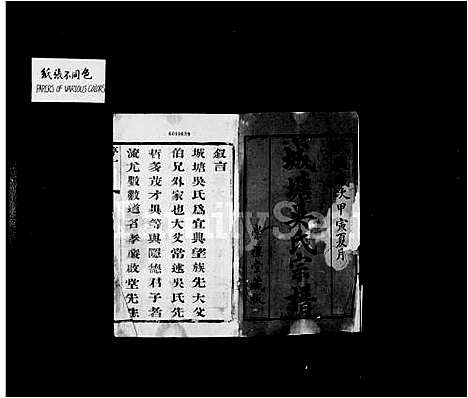 紙張不同色
PAPERS OF VARIOUS COLORS
6011639
城塘吳氏宗譜
歲次甲寅夏月
敘言
城塘吳氏爲宜興望族先大父
伯兄外家也大父嘗述吳氏先
哲多茂才異等與隱德君子若
流尤數數道名孝廉啟堂先生